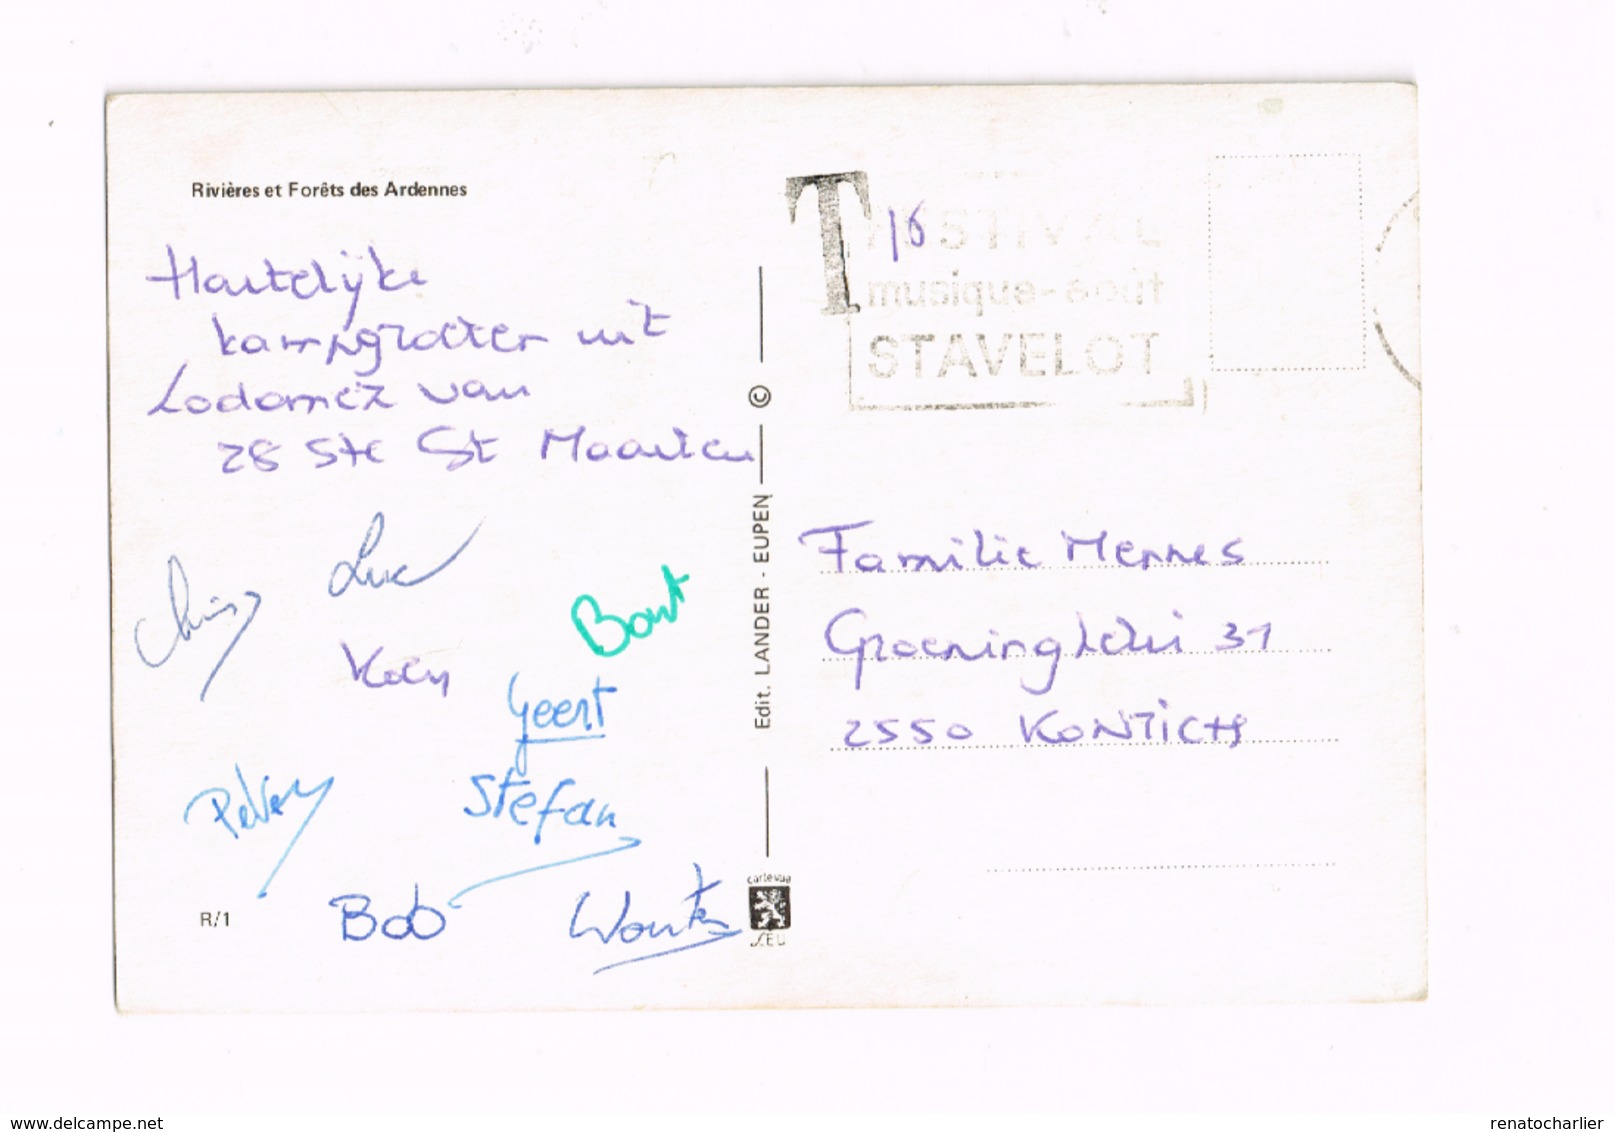 Rivières et Forêts des Ardennes
Hartelijke
kampgroeten uit
Lodomez van
28 ste St Maarten
Luc
Bart
Koen
Geert
Peter
Stefan
Bob
Wouter
R/1
Edit. LANDER - EUPEN ©
carte vue
T 16
FESTIVAL
musique-août
STAVELOT
Familie Mennes
Groeninglelei 31
2550 KONTICH
delcampe.net
renatocharlier